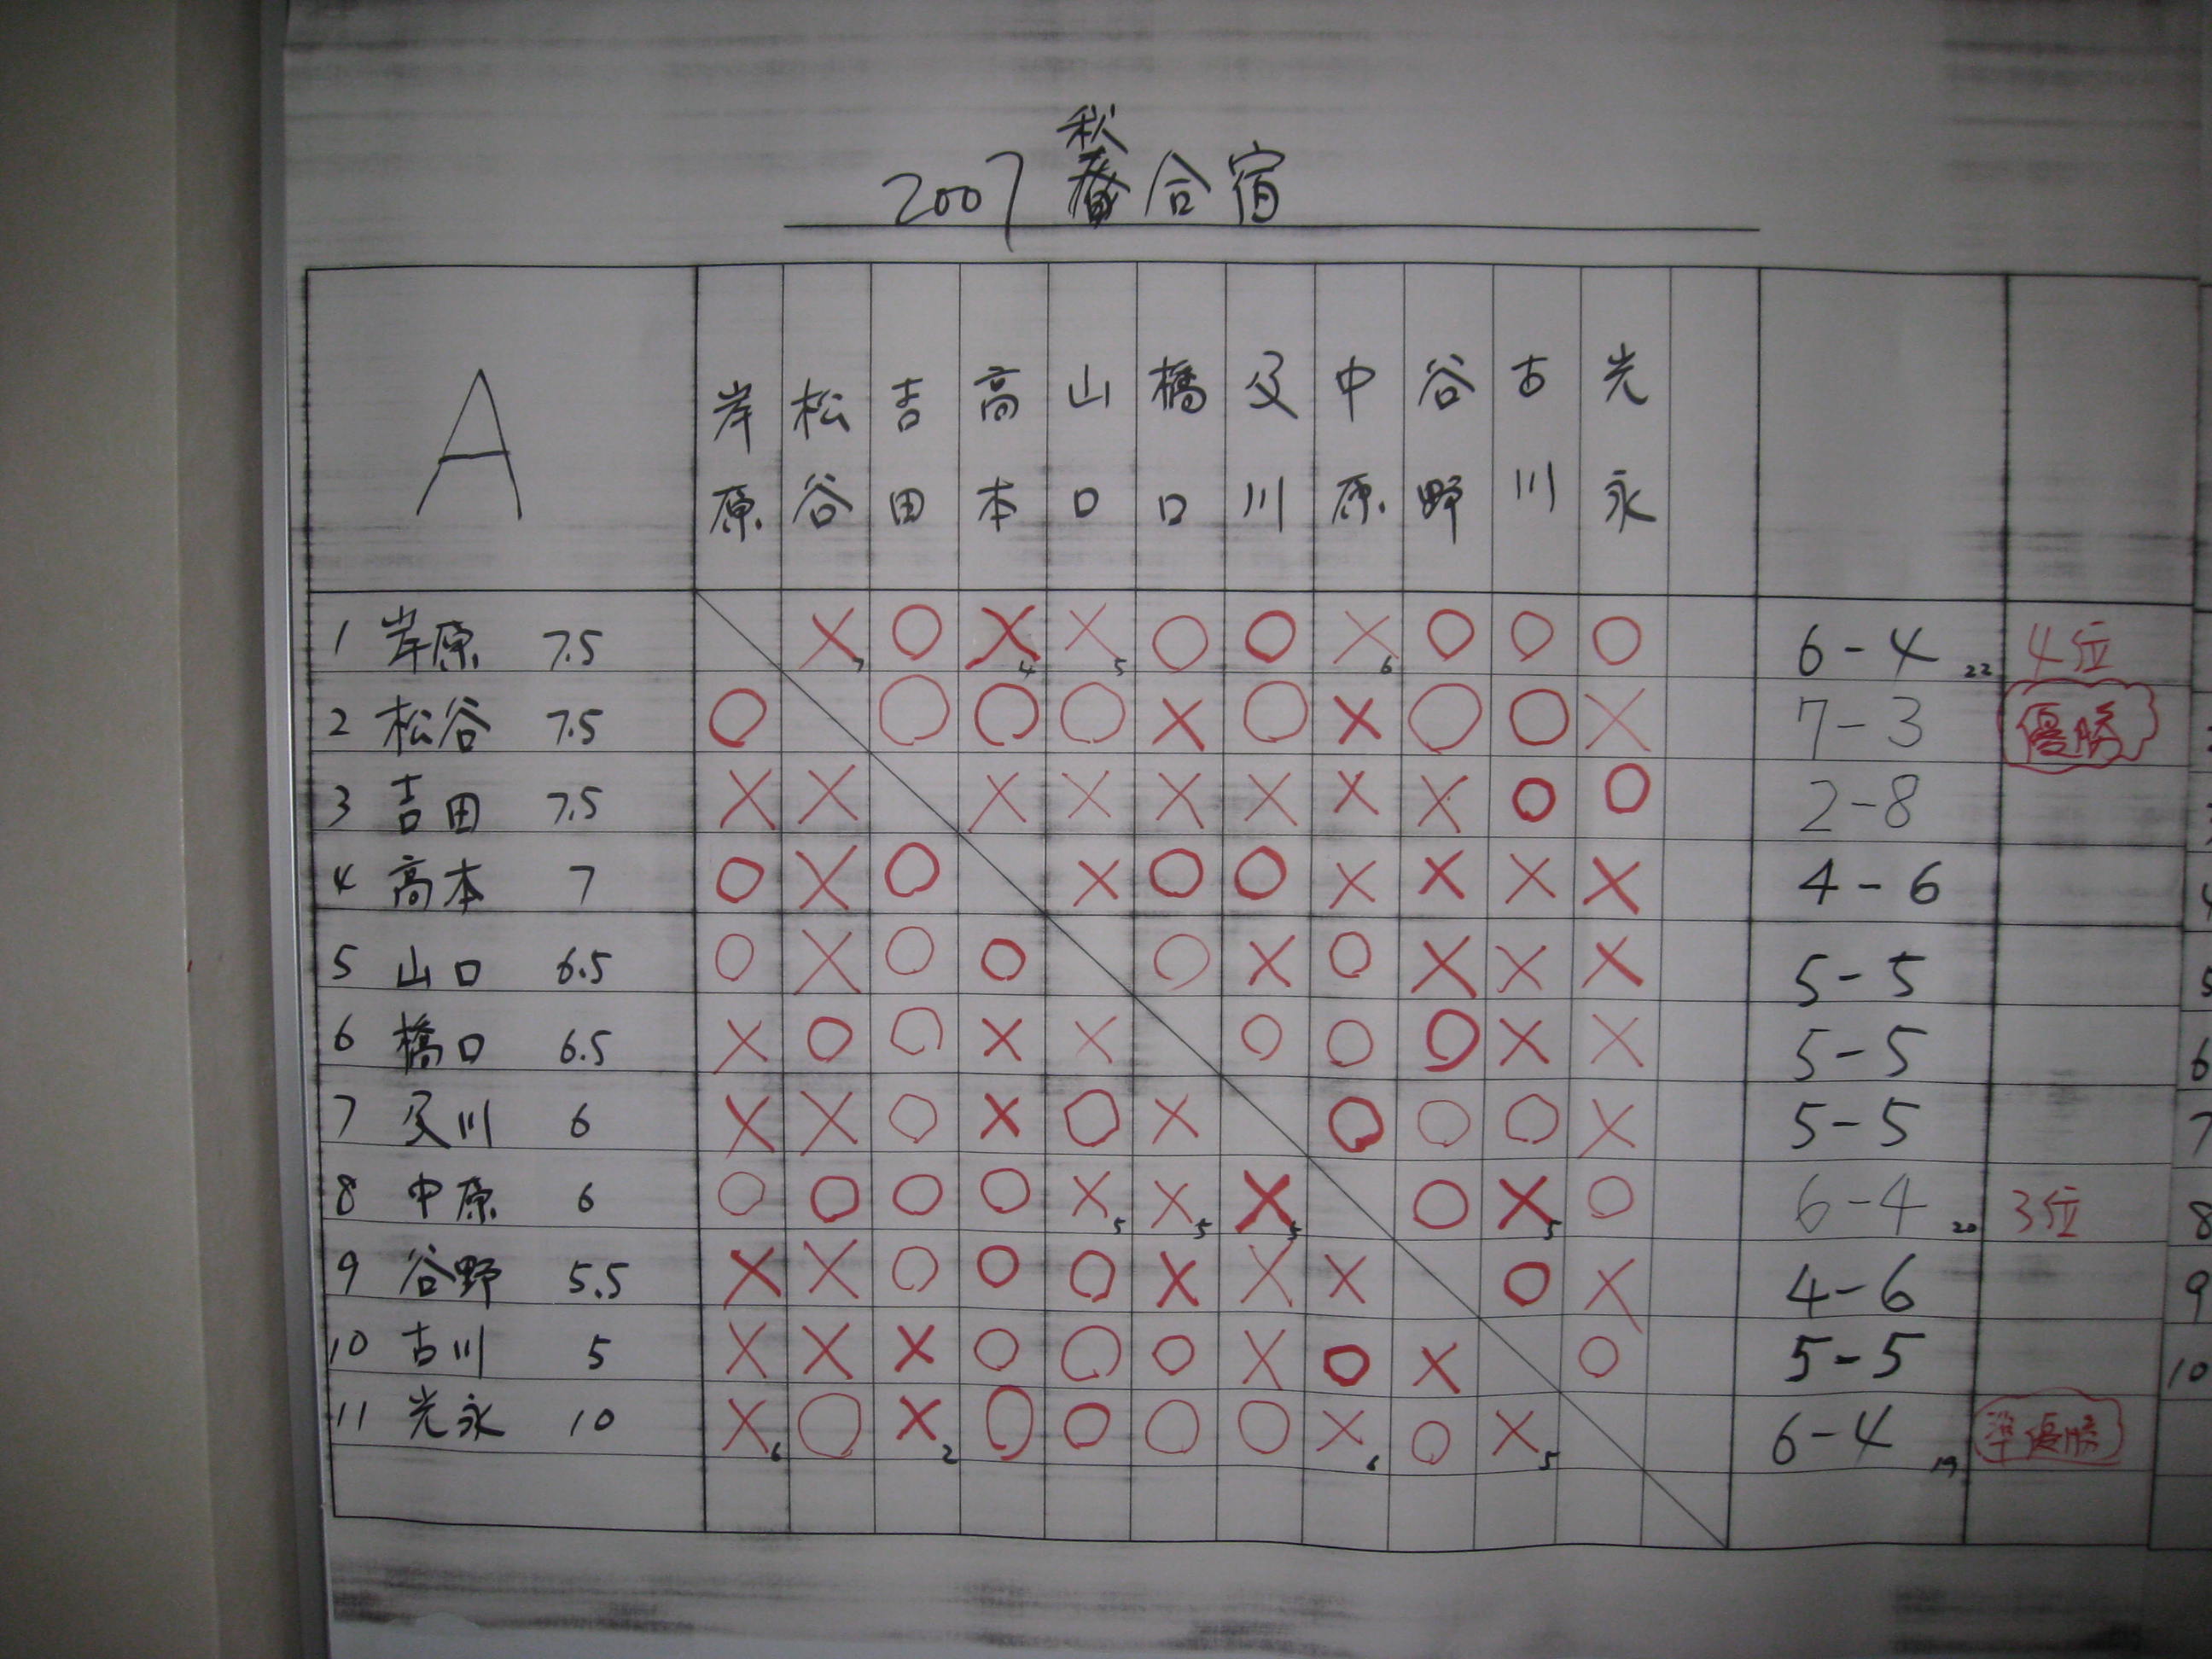 秋
2007 合宿
A 岸原 松谷 吉田 高本 山口 橋口 及川 中原 谷野 古川 光永
1 岸原 7.5 × 7 ○ × 4 × 5 ○ ○ × 6 ○ ○ ○ 6-4 22 4位
2 松谷 7.5 ○ ○ ○ ○ × ○ × ○ ○ × 7-3 優勝
3 吉田 7.5 × × × × × × × × ○ ○ 2-8
4 高本 7 ○ × ○ × ○ ○ × × × × 4-6
5 山口 6.5 ○ × ○ ○ ○ × ○ × × × 5-5
6 橋口 6.5 × ○ ○ × × ○ ○ ○ × × 5-5
7 及川 6 × × ○ × ○ × ○ ○ ○ × 5-5
8 中原 6 ○ ○ ○ ○ × 5 × 5 × 5 ○ × 5 ○ 6-4 20 3位
9 谷野 5.5 × × ○ ○ ○ × × × ○ × 4-6
10 古川 5 × × × ○ ○ ○ × ○ × ○ 5-5
11 光永 10 × 6 ○ × 2 ○ ○ ○ ○ × 6 ○ × 5 6-4 19 準優勝